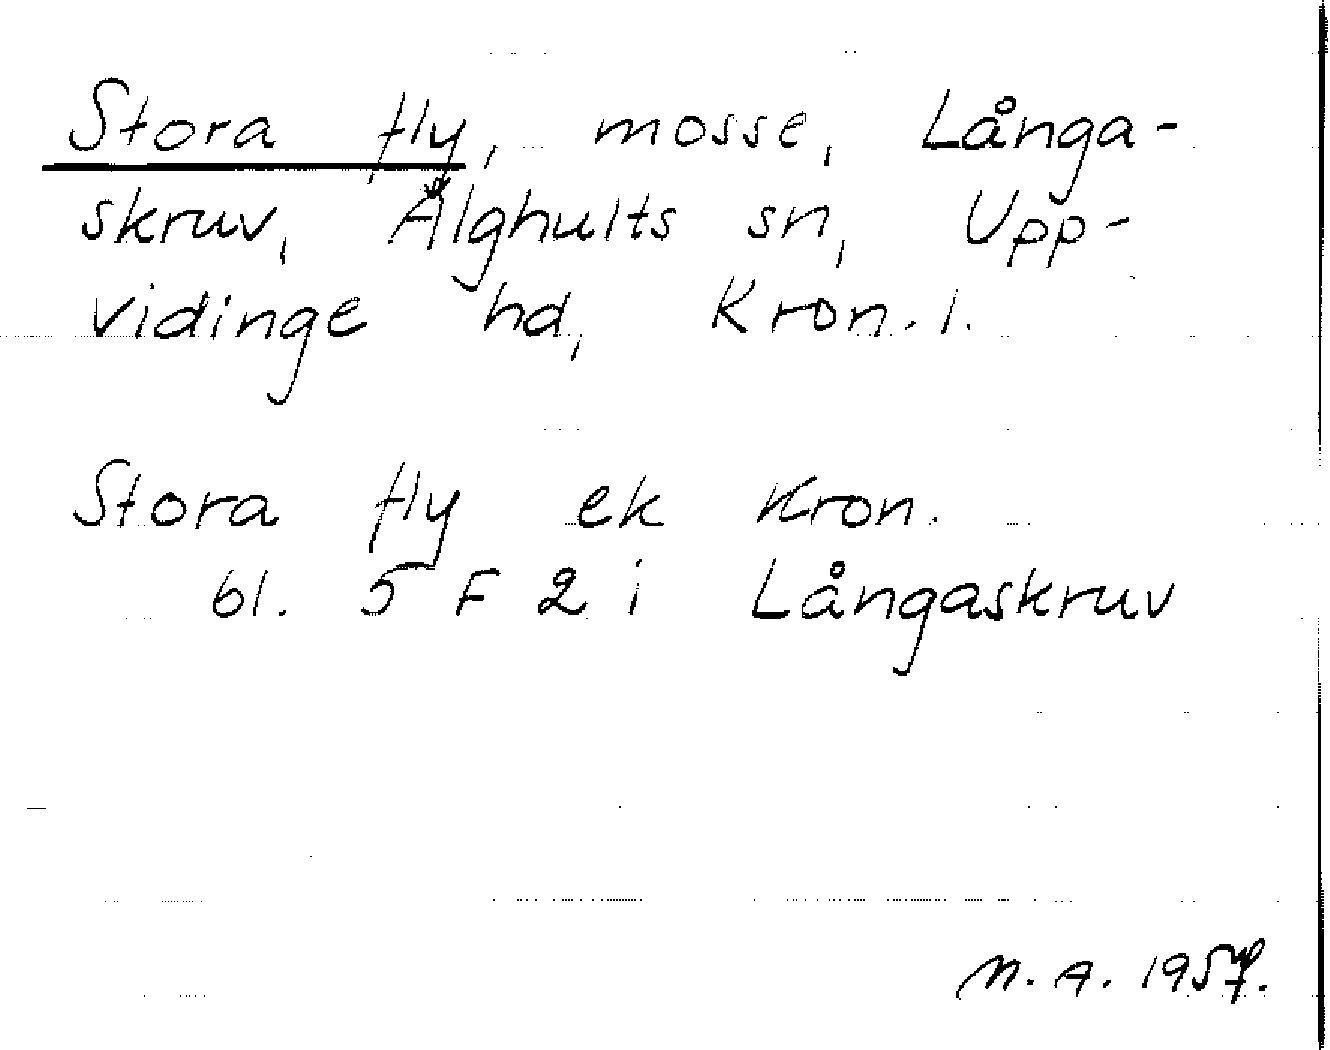 Stora fly, mosse, Långa-
skruv, Älghults sn, Upp-
vidinge hd, Kron. l.
Stora fly ek Kron.
bl. 5 F 2 i Långaskruv
M. A. 1957.